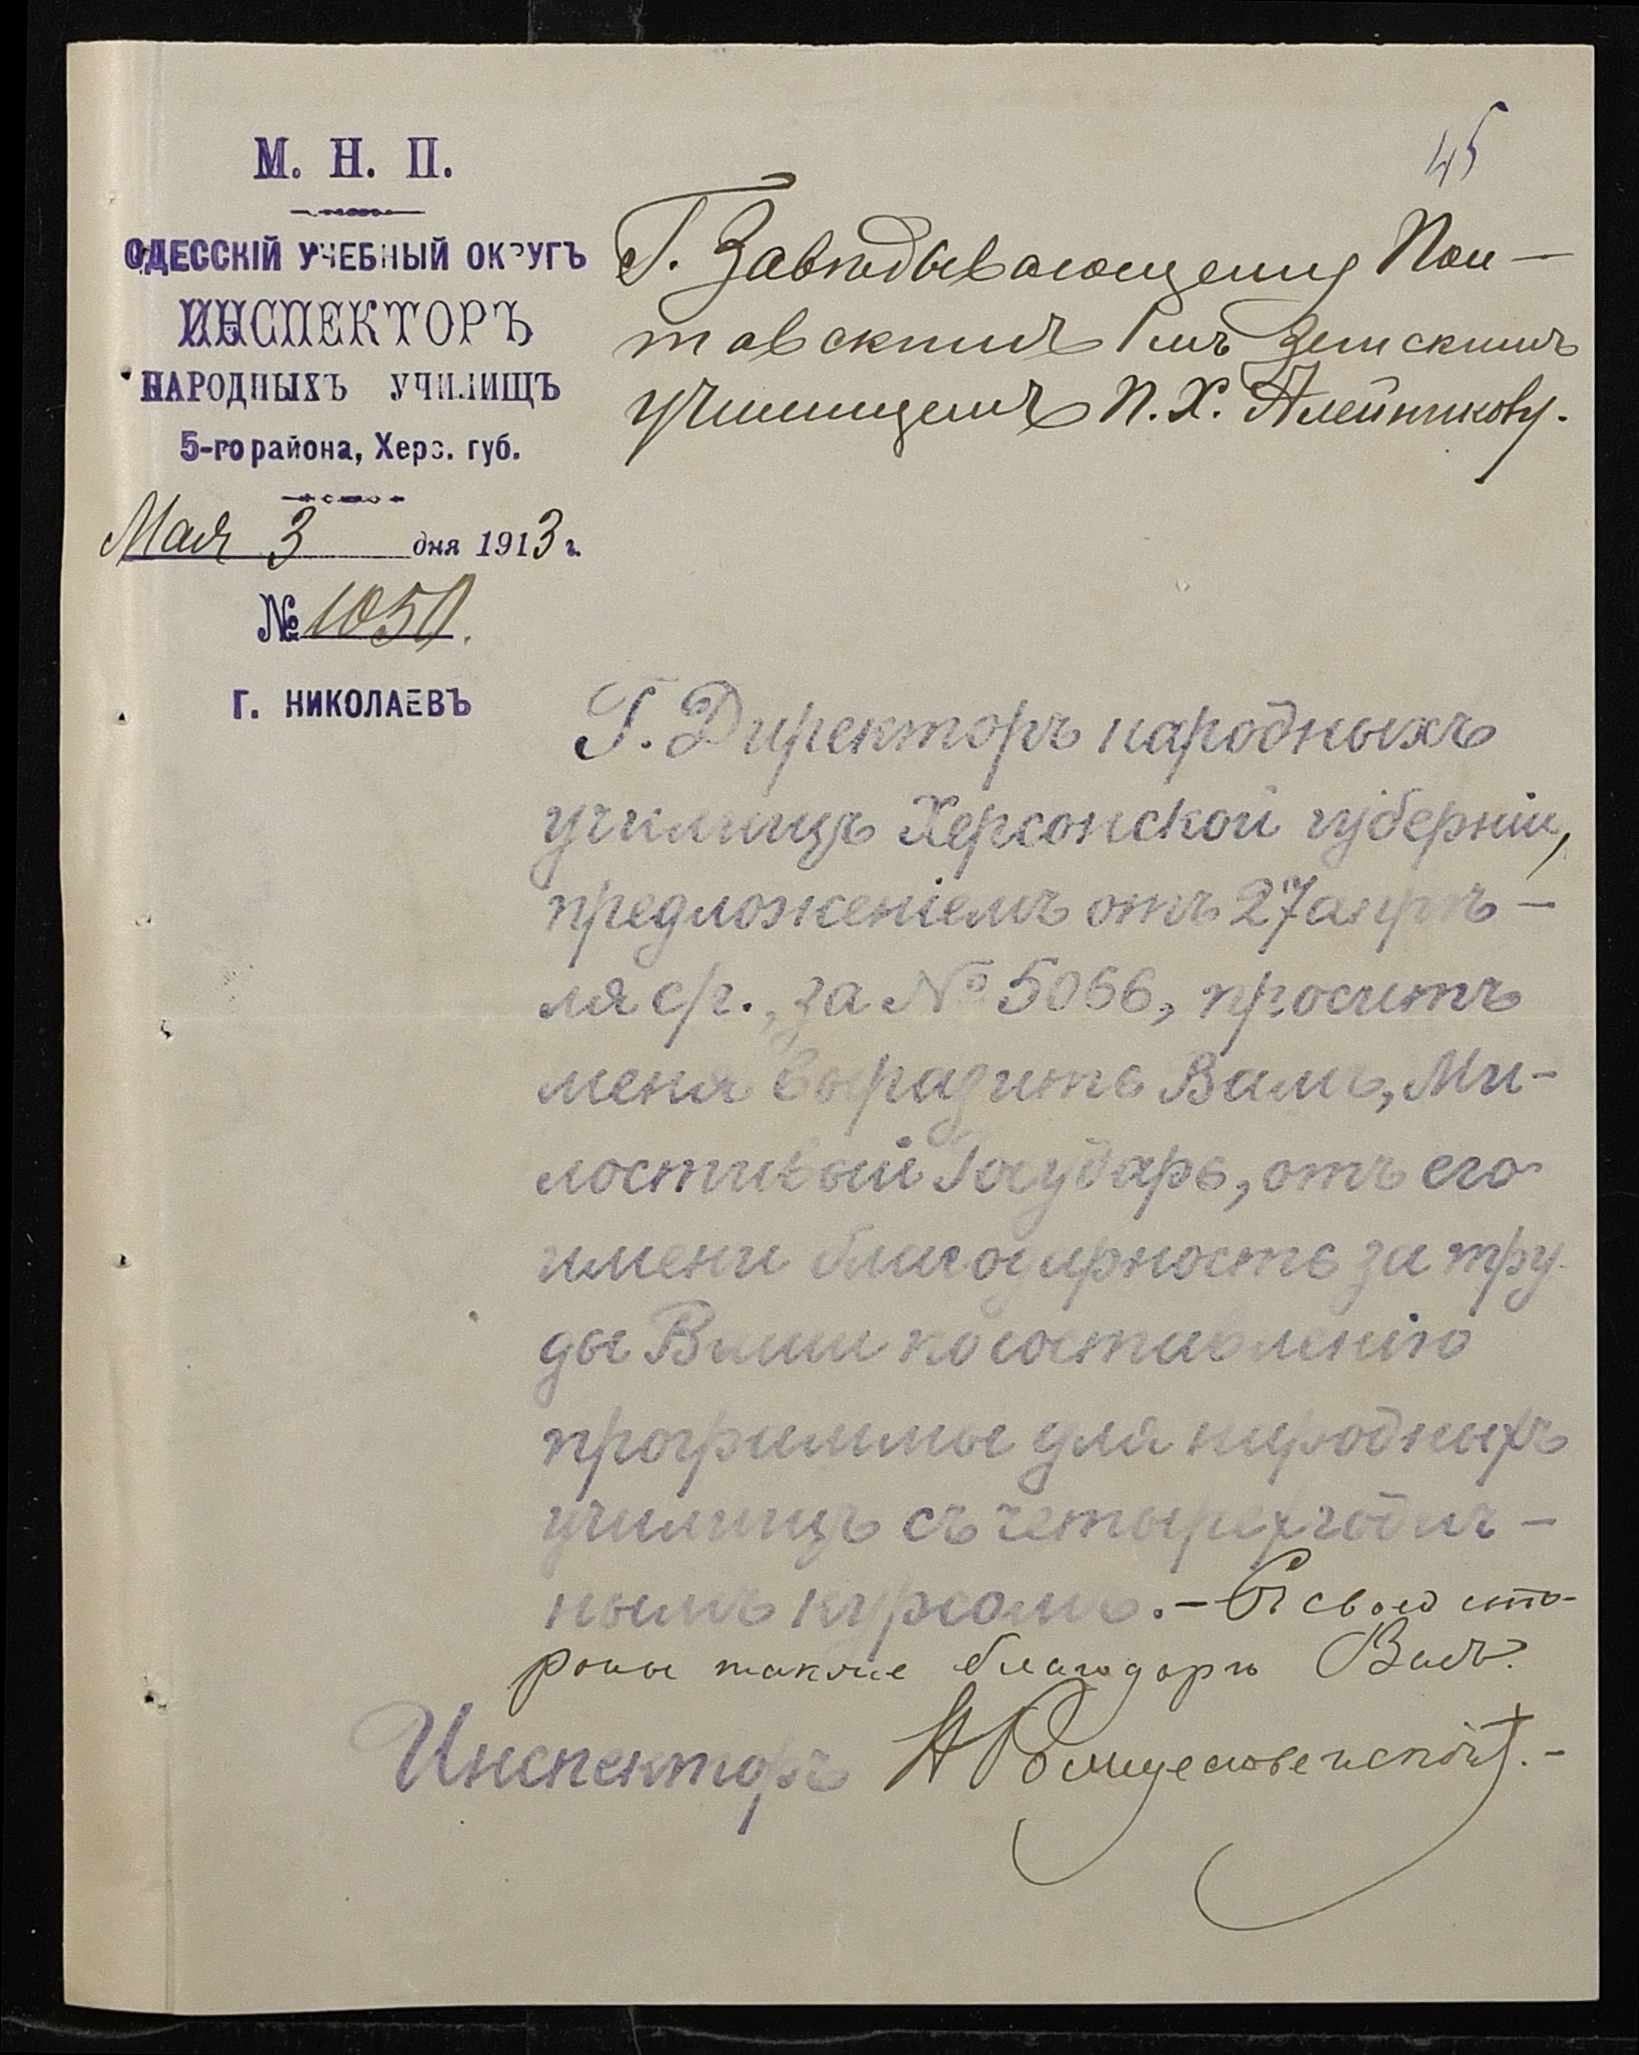 45
М. Н. П.
ОДЕССКІЙ УЧЕБНЫЙ ОКРУГЪ
ИНСПЕКТОРЪ
НАРОДНЫХЪ УЧИЛИЩЪ
5-го района, Херс. губ.
Мая 3 дня 1913 г.
№ 1050.
Г. НИКОЛАЕВЪ
Г. Завѣдывающему Пол-
тавскимъ Земскимъ
училищемъ П. Х. Алейникову.
Г. Директоръ народныхъ
училищъ Херсонской губерніи,
предложеніемъ отъ 27 апрѣ-
ля с/г., за № 5066, проситъ
меня выразить Вамъ, Ми-
лостивый Государь, отъ его
имени благодарность за тру-
ды Ваши по составленію
программы для народныхъ
училищъ съ четырехгодич-
нымъ курсомъ. - Съ своей сто-
роны также благодарю Васъ.
Инспекторъ